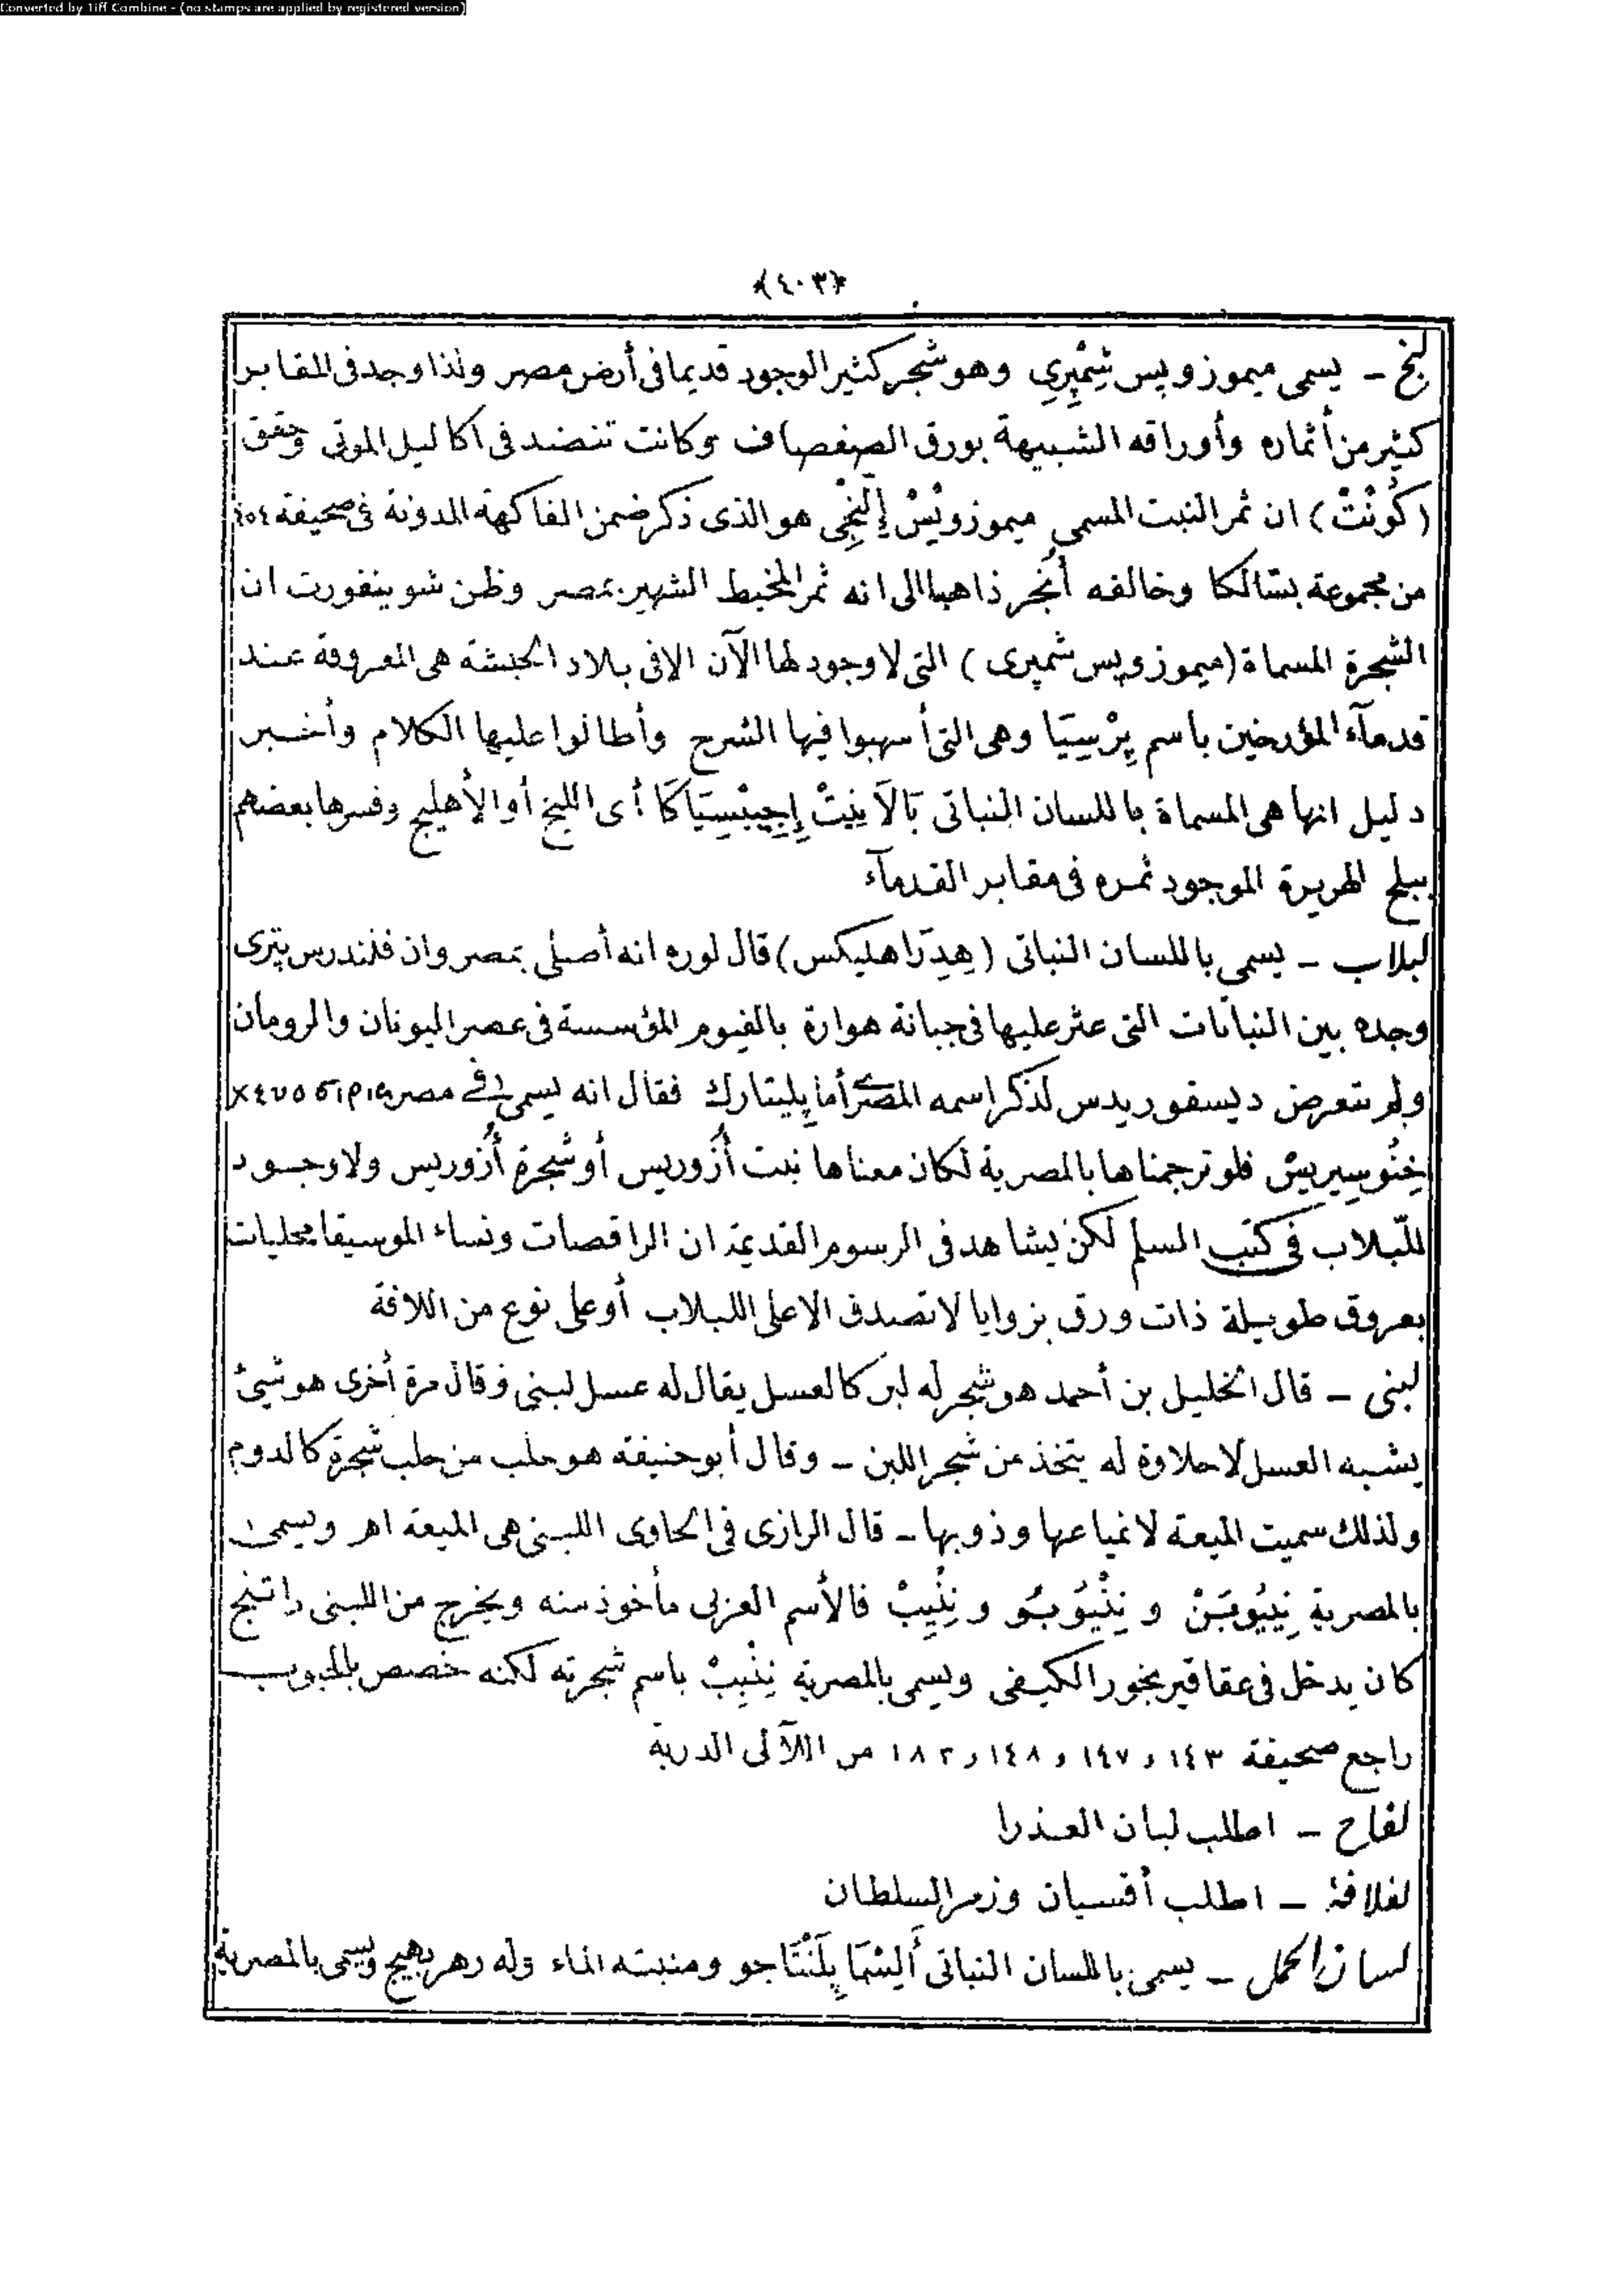 Converted by Tiff Combine - (no stamps are applied by registered version)
﴿٤٠٣﴾
لبخ ـ يسمى ميموزوپس شِمْپِرِى وهو شجر كثير الوجود قديما فى أرض مصر ولذا وجد فى المقابر
كثير من أثماره وأوراقه الشبيهة بورق الصفصاف وكانت تنضد فى اكاليل الموتى وحقق
(كُونْتْ) ان ثمر النبت المسمى ميموزوپْسْ إِلَنْجِى هو الذى ذكر ضمن الفاكهة المدونة فى صحيفة
من مجموعة بتالكا وخالفه أُنْجر ذاهبا الى انه ثمر المخيط الشهير بمصر وظن شوينفورت ان
الشجرة المسماة (ميموزوپس شمپرى) التى لا وجود لها الآن الا فى بلاد الحبشة هى المعروفة عند
قدمآء المؤرخين باسم پِرْسِيَا وهى التى أسهبوا فيها الشرح وأطالوا عليها الكلام وأخبر
دليل انها هى المسماة باللسان النباتى بَالاَنِيتْ إِجِيبْسِيَاكَا أى اللبخ أو الأهليج وفسرها بعضهم
ببلح الهريرة الموجود ثمره فى مقابر القدمآء
لبلاب ـ يسمى باللسان النباتى (هِدِرَا هليكس) قال لوره انه أصلى بمصر وان فلندرس پترى
وجده بين النباتات التى عثر عليها فى جبانة هوارة بالفيوم المؤسسة فى عصر اليونان والرومان
ولم يتعرض ديسقوريدس لذكر اسمه المصرى أما پليتارك فقال انه يسمى فى مصر
خِنُوسِيرِيسْ فلو ترجمناها بالمصرية لكان معناها نبت أُزوريس أو شجرة أُزوريس ولا وجود
للّبلاب فى كتب السلم لكن يشاهد فى الرسوم القديمة ان الراقصات ونساء الموسيقا محليات
بعروق طويلة ذات ورق بزوايا لا تصدق الا على اللبلاب أو على نوع من اللافة
لبنى ـ قال الخليل بن أحمد هو شجر له لبن كالعسل يقال له عسل لبنى وقال مرة أخرى هو شئ
يشبه العسل لا حلاوة له يتخذ من شجر اللبن ـ وقال أبو حنيفة هو حلب من حلب شجرة كالدوم
ولذلك سميت الميعة لانمياعها وذوبها ـ قال الرازى فى الحاوى اللبنى هى الميعة اهـ ويسمى
بالمصرية و و فالأسم العربى مأخوذ منه ويخرج من اللبنى راتنج
كان يدخل فى عقاقير بخور الكيفى ويسمى بالمصرية باسم شجرته لكنه خصص بالحبوب
راجع صحيفة ١٤٣ و ١٤٧ و ١٤٨ و ١٨٢ من اللآلى الدرية
لفاح ـ اطلب لبان العذرا
لفلافة ـ اطلب أقسيان وزمر السلطان
لسان الحمل ـ يسمى باللسان النباتى أَلِيسْمَا پِلَنْتَاجو ومنبته الماء وله زهر بهيج ويسمى بالمصرية